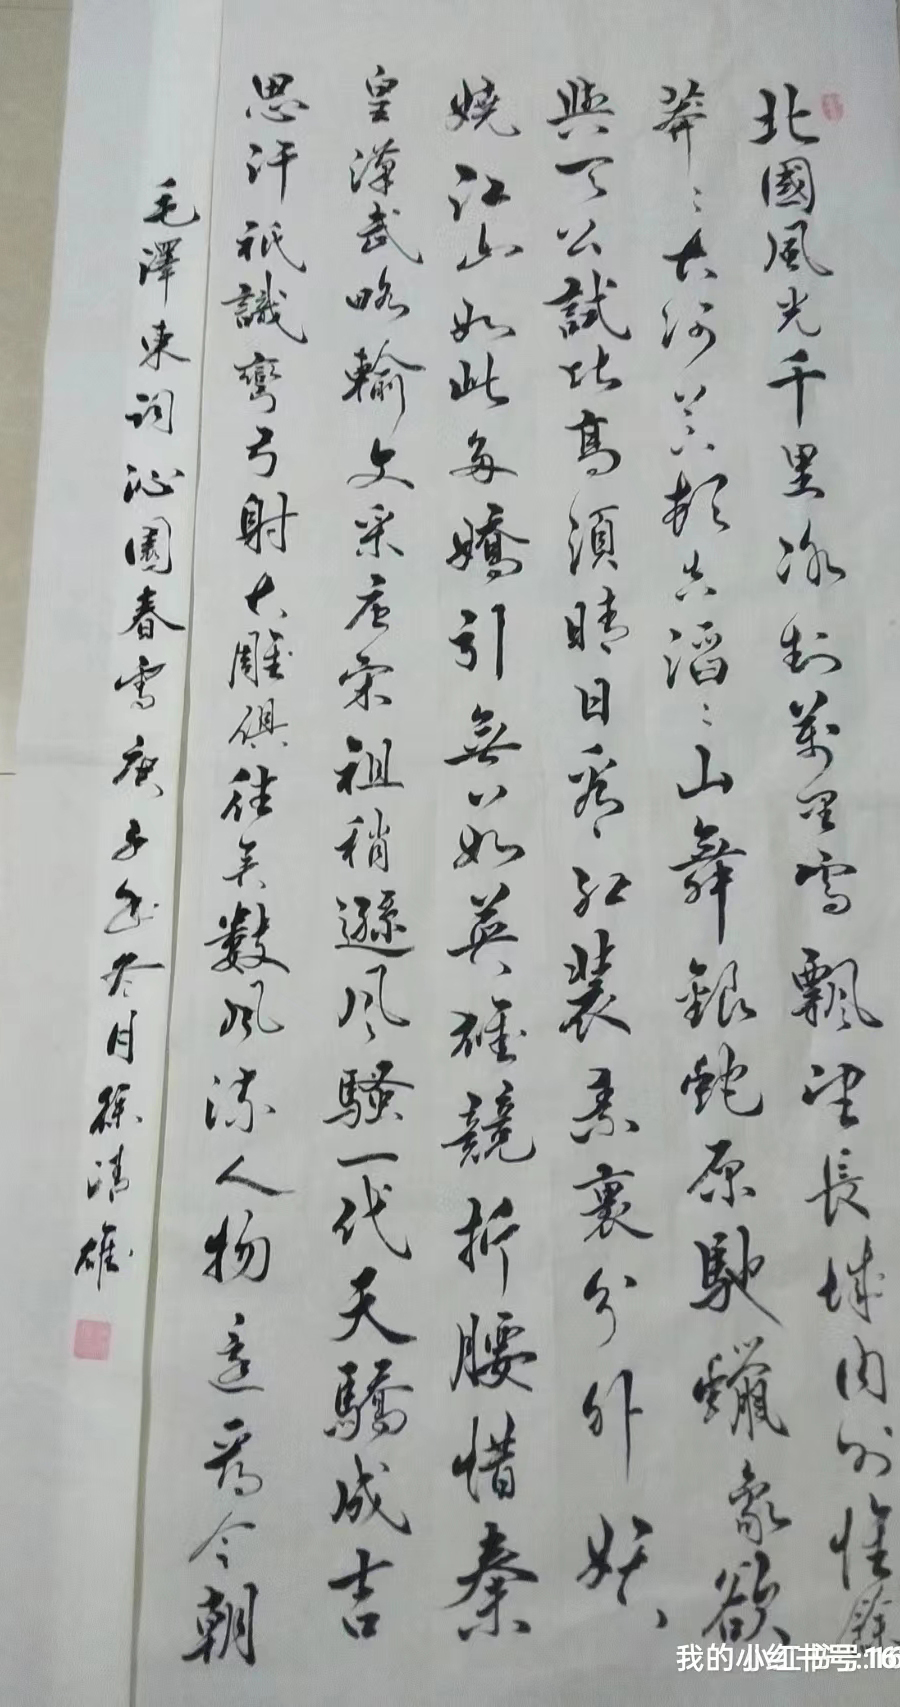 北國風光千里冰封萬里雪飄望長城內外惟餘
莽〻大河上下頓失滔〻山舞銀蛇原馳蠟象欲
與天公試比高須晴日看紅裝素裹分外妖
嬈江山如此多嬌引無數英雄競折腰惜秦
皇漢武略輸文采唐宋祖稍遜風騷一代天驕成吉
思汗祇識彎弓射大雕俱往矣數風流人物還看今朝
毛澤東詞沁園春雪庚子年冬月徐清雄
我的小红书号: